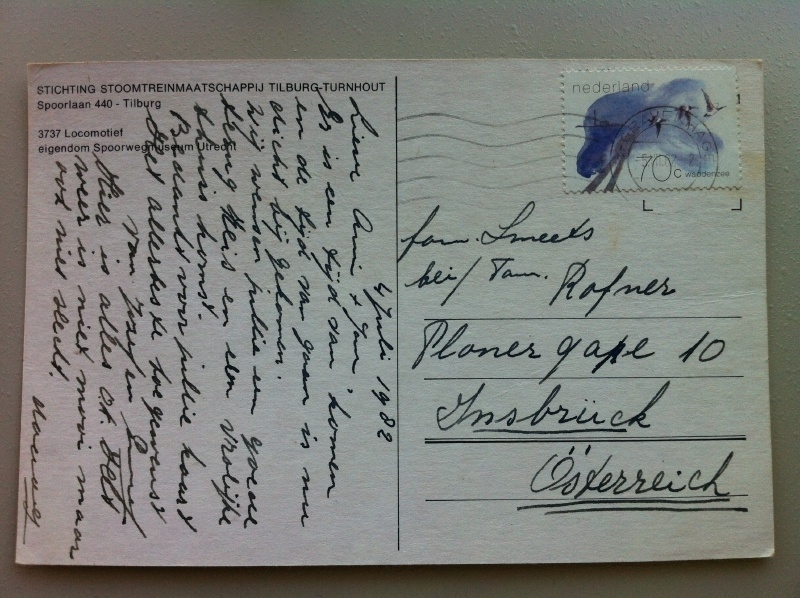 STICHTING STOOMTREINMAATSCHAPPIJ TILBURG-TURNHOUT
Spoorlaan 440 - Tilburg
3737 Locomotief
eigendom Spoorwegmuseum Utrecht
4 Juli 1982
Lieve Ami + Jan,
Er is een tijd van komen
en de tijd van gaan is nu
dicht bij gekomen.
Wij wensen jullie een goede
terug reis en een vrolijke
thuis komst.
Bedankt voor jullie kaart
Het allerbeste toegewenst
van Jozef en
Hier is alles o.k. Het
weer is niet mooi maar
ook niet slecht.
nederland
70c waddenzee
fam. Smeets
bei/ Fam. Rofner
Planergasse 10
Innsbrück
Österreich